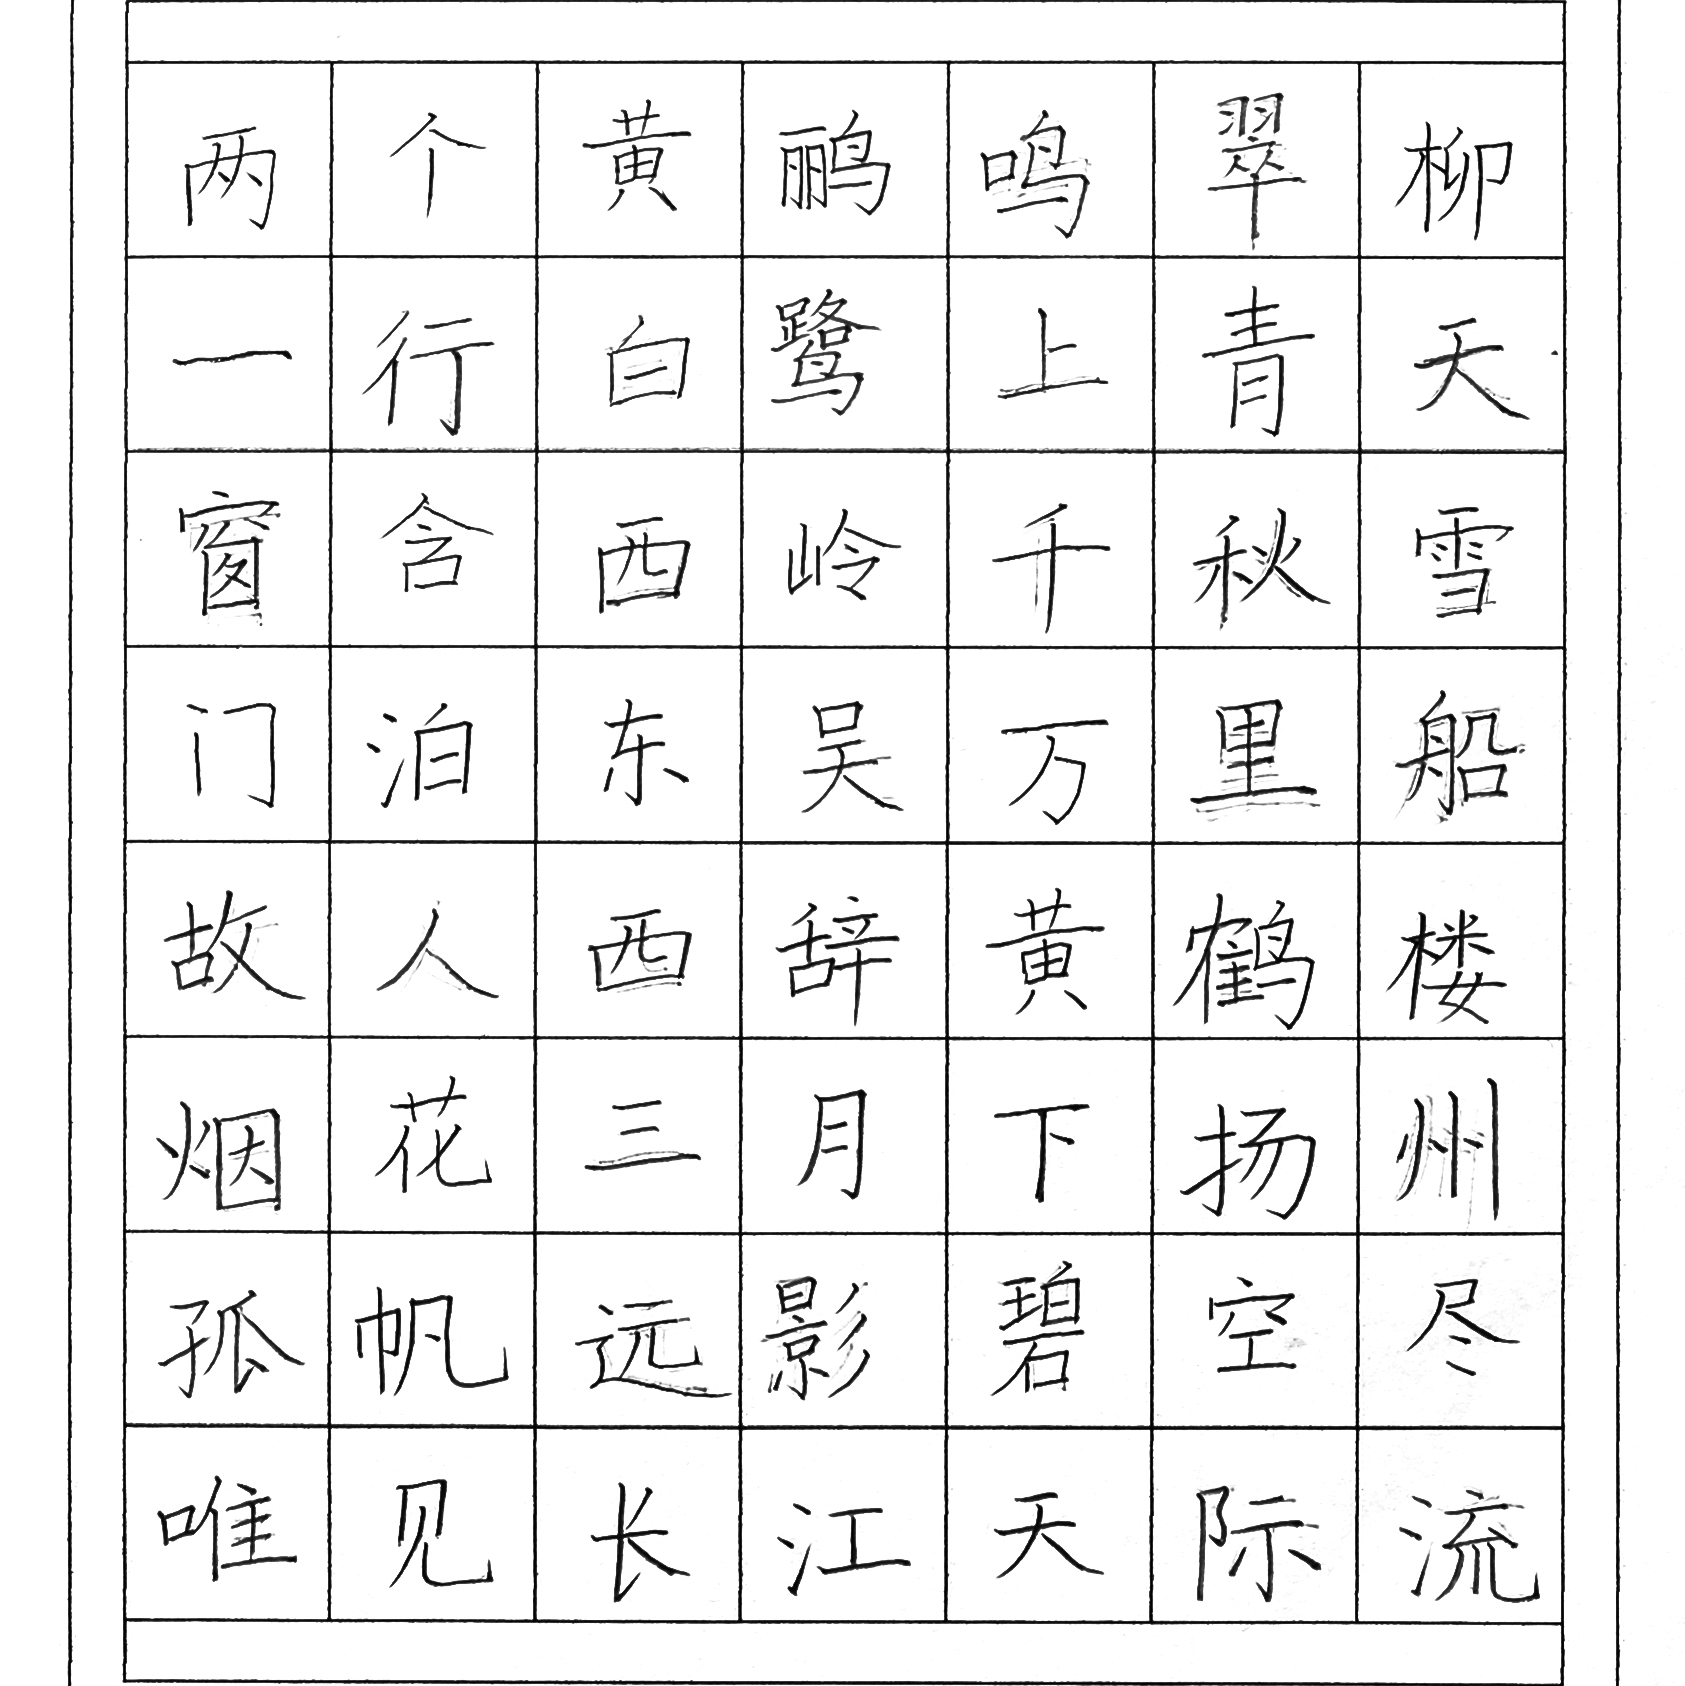 两个黄鹂鸣翠柳
一行白鹭上青天
窗含西岭千秋雪
门泊东吴万里船
故人西辞黄鹤楼
烟花三月下扬州
孤帆远影碧空尽
唯见长江天际流